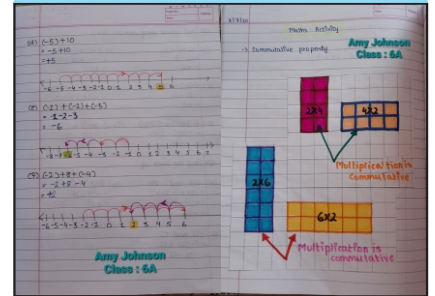 (-5)+10
= -5+10
= +5
-6 -5 -4 -3 -2 -1 0 1 2 3 4 5 6
= -1-2-3
= -6
(-2)+8+(-4)
= -2+8-4
= +2
-6 -5 -4 -3 -2 -1 0 1 2 3 4 5 6
Amy Johnson
Class : 6A
Maths Activity
→ Commutative property
Amy Johnson
Class : 6A
2x4
4x2
Multiplication is
commutative
2x6
6x2
Multiplication is
commutative